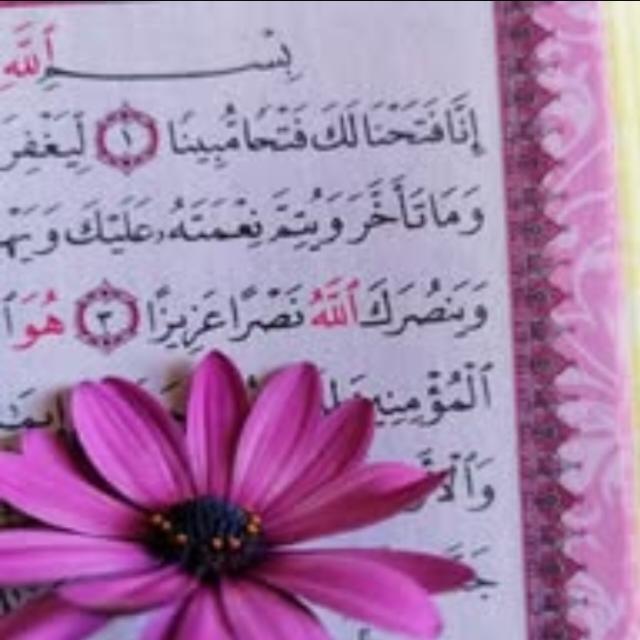 بِسْمِ ٱللَّهِ
إِنَّا فَتَحْنَا لَكَ فَتْحًا مُّبِينًا ١ لِّيَغْفِرَ
وَمَا تَأَخَّرَ وَيُتِمَّ نِعْمَتَهُۥ عَلَيْكَ
وَيَنصُرَكَ ٱللَّهُ نَصْرًا عَزِيزًا ٣ هُوَ
ٱلْمُؤْمِنِينَ